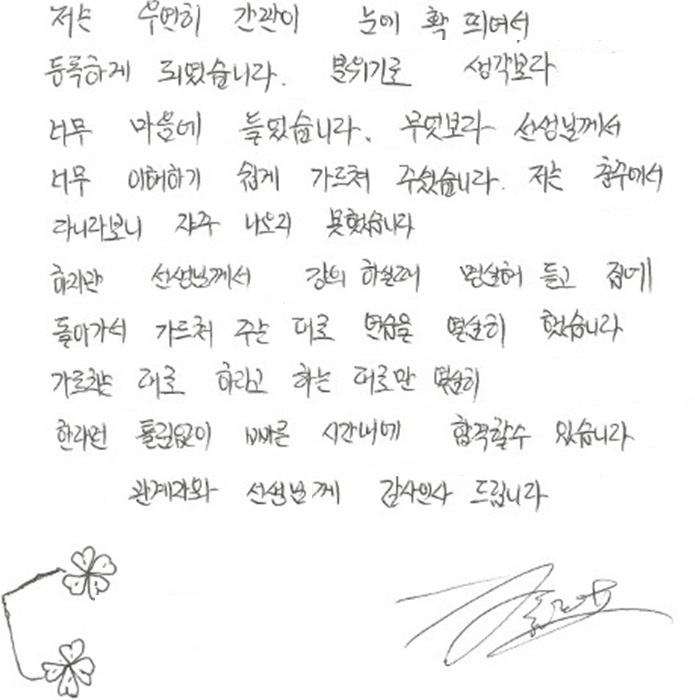 저는 우연히 간판이 눈에 확 띄여서
등록하게 되였습니다. 분위기로 생각보다
너무 마음에 들었습니다. 무엇보다 선생님께서
너무 이해하기 쉽게 가르쳐 주셨습니다. 저는 충주에서
다니다보니 자주 나오지 못했습니다
하지만 선생님께서 강의 하실때 열심히 듣고 집에
돌아가서 가르쳐 주는 대로 연습을 열심히 했습니다
가르치는 대로 하라고 하는 대로만 열심히
한다면 틀림없이 빠른 시간내에 합격할수 있습니다
관계자와 선생님께 감사인사 드립니다